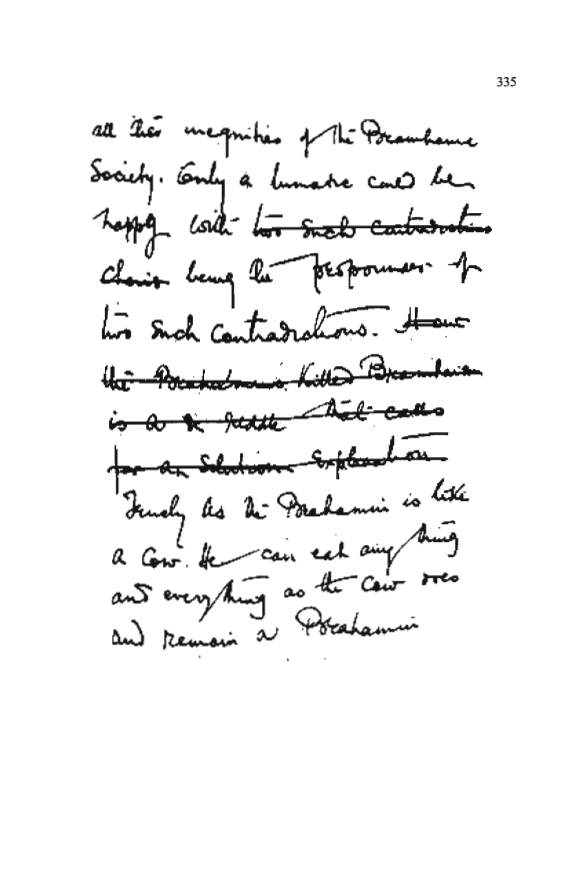 335
all the inequities of the Bramhanic
Society. Only a lunatic could be
happy with two such contradictions
being the propounder of
two such contradictions. How
the Brahmins killed Bramhanism
is a riddle that calls
for an Solution Explanation
Truely as the Brahamin is like
a Cow. He can eat any thing
and every thing as the Cow does
and remain a Brahamin